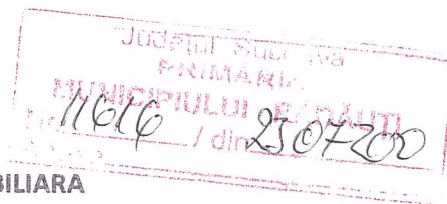 Județul Suceava
PRIMĂRIA
MUNICIPIULUI RĂDĂUȚI
11616 / din 23 07 200
BILIARA